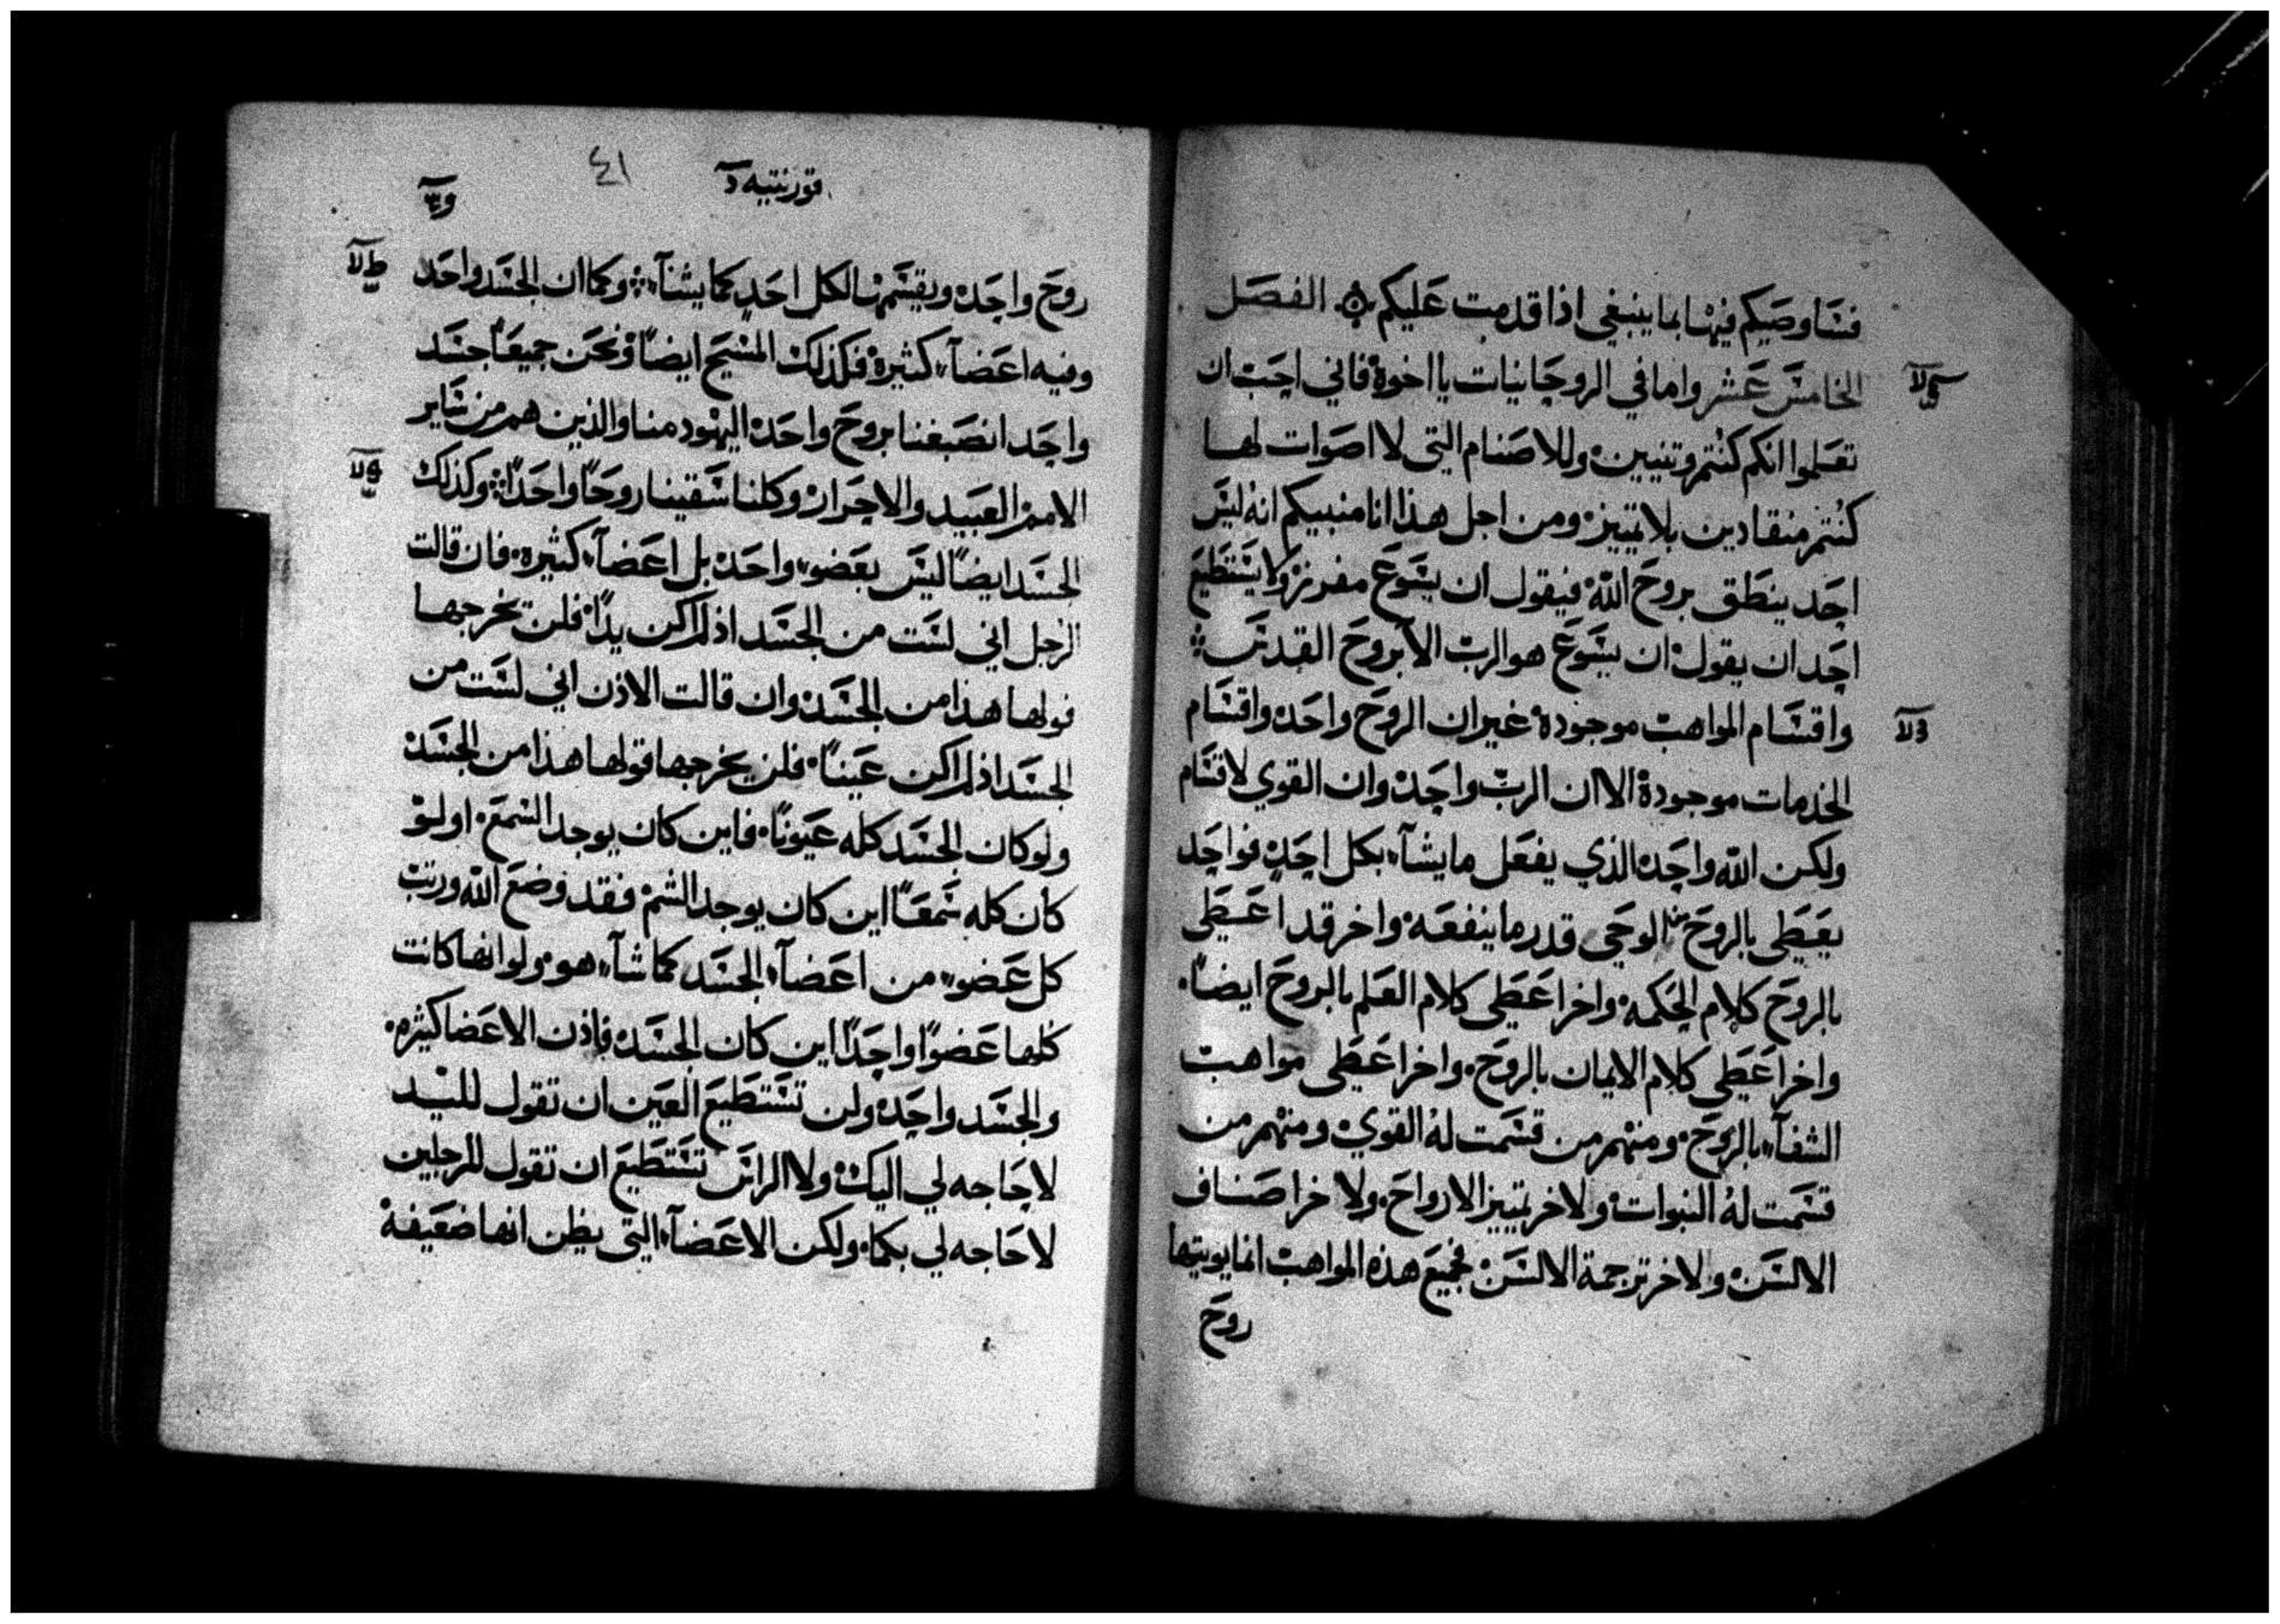 فساوصيكم فيها بما ينبغي اذا قدمت عليكم الفصل
الخامس عشر واما في الروحانيات يا اخوة فاني احب ان
تعلموا انكم كنتم وتنيين وللاصنام التي لا اصوات لها
كنتم منقادين بلا تمييز ومن اجل هذا انا منبيكم انه ليس
احد ينطق بروح الله فيقول ان يسوع مفرز ولا يستطيع
احد ان يقول ان يسوع هو الرب الا بروح القدس
واقسام المواهب موجودة غير ان الروح واحد واقسام
الخدمات موجودة الا ان الرب واحد وان القوي لاقسام
ولكن الله واحد الذي يفعل ما يشآء بكل احد فواحد
يعطى بالروح من الوحي قدر ما ينفعه واخر قد اعطي
بالروح كلام الحكمه واخر اعطى كلام العلم بالروح ايضًا
واخر اعطي كلام الايمان بالروح واخر اعطي مواهب
الشفآء بالروح ومنهم من قسمت له القوي ومنهم من
قسمت له النبوات ولاخر تمييز الارواح ولاخر اصناف
الالسن ولاخر ترجمة الالسن فجميع هذه المواهب انما يويتها
روح
قورنتيه
٤١
روح واحد ويقسمها لكل احد كما يشآء وكما ان الجسد واحد
وفيه اعضآء كثيرة فكذلك المسيح ايضًا ونحن جميعًا جسد
واحد انصبغنا بروح واحد اليهود منا والذين هم من ساير
الامم العبيد والاحرار وكلنا سقينا روحًا واحدًا وكذلك
الجسد ايضًا ليس بعضو واحد بل اعضآء كثيره فان قالت
الرجل اني لست من الجسد اذ لم اكن يدًا فلن تخرجها
قولها هذا من الجسد وان قالت الاذن اني لست من
الجسد اذ لم اكن عينًا فلن يخرجها قولها هذا من الجسد
ولو كان الجسد كله عيونًا فاين كان يوجد السمع او لو
كان كله سمعًا اين كان يوجد الشم فقد وضع الله ورتب
كل عضو من اعضآء الجسد كما شآء هو ولو انها كانت
كلها عضوًا واحدًا اين كان الجسد فاذن الاعضا كثيره
والجسد واحد ولن تستطيع العين ان تقول لليد
لا حاجه لي اليك ولا الراس تستطيع ان تقول للرجلين
لا حاجه لي بكما ولكن الاعضآء التي يظن انها ضعيفة